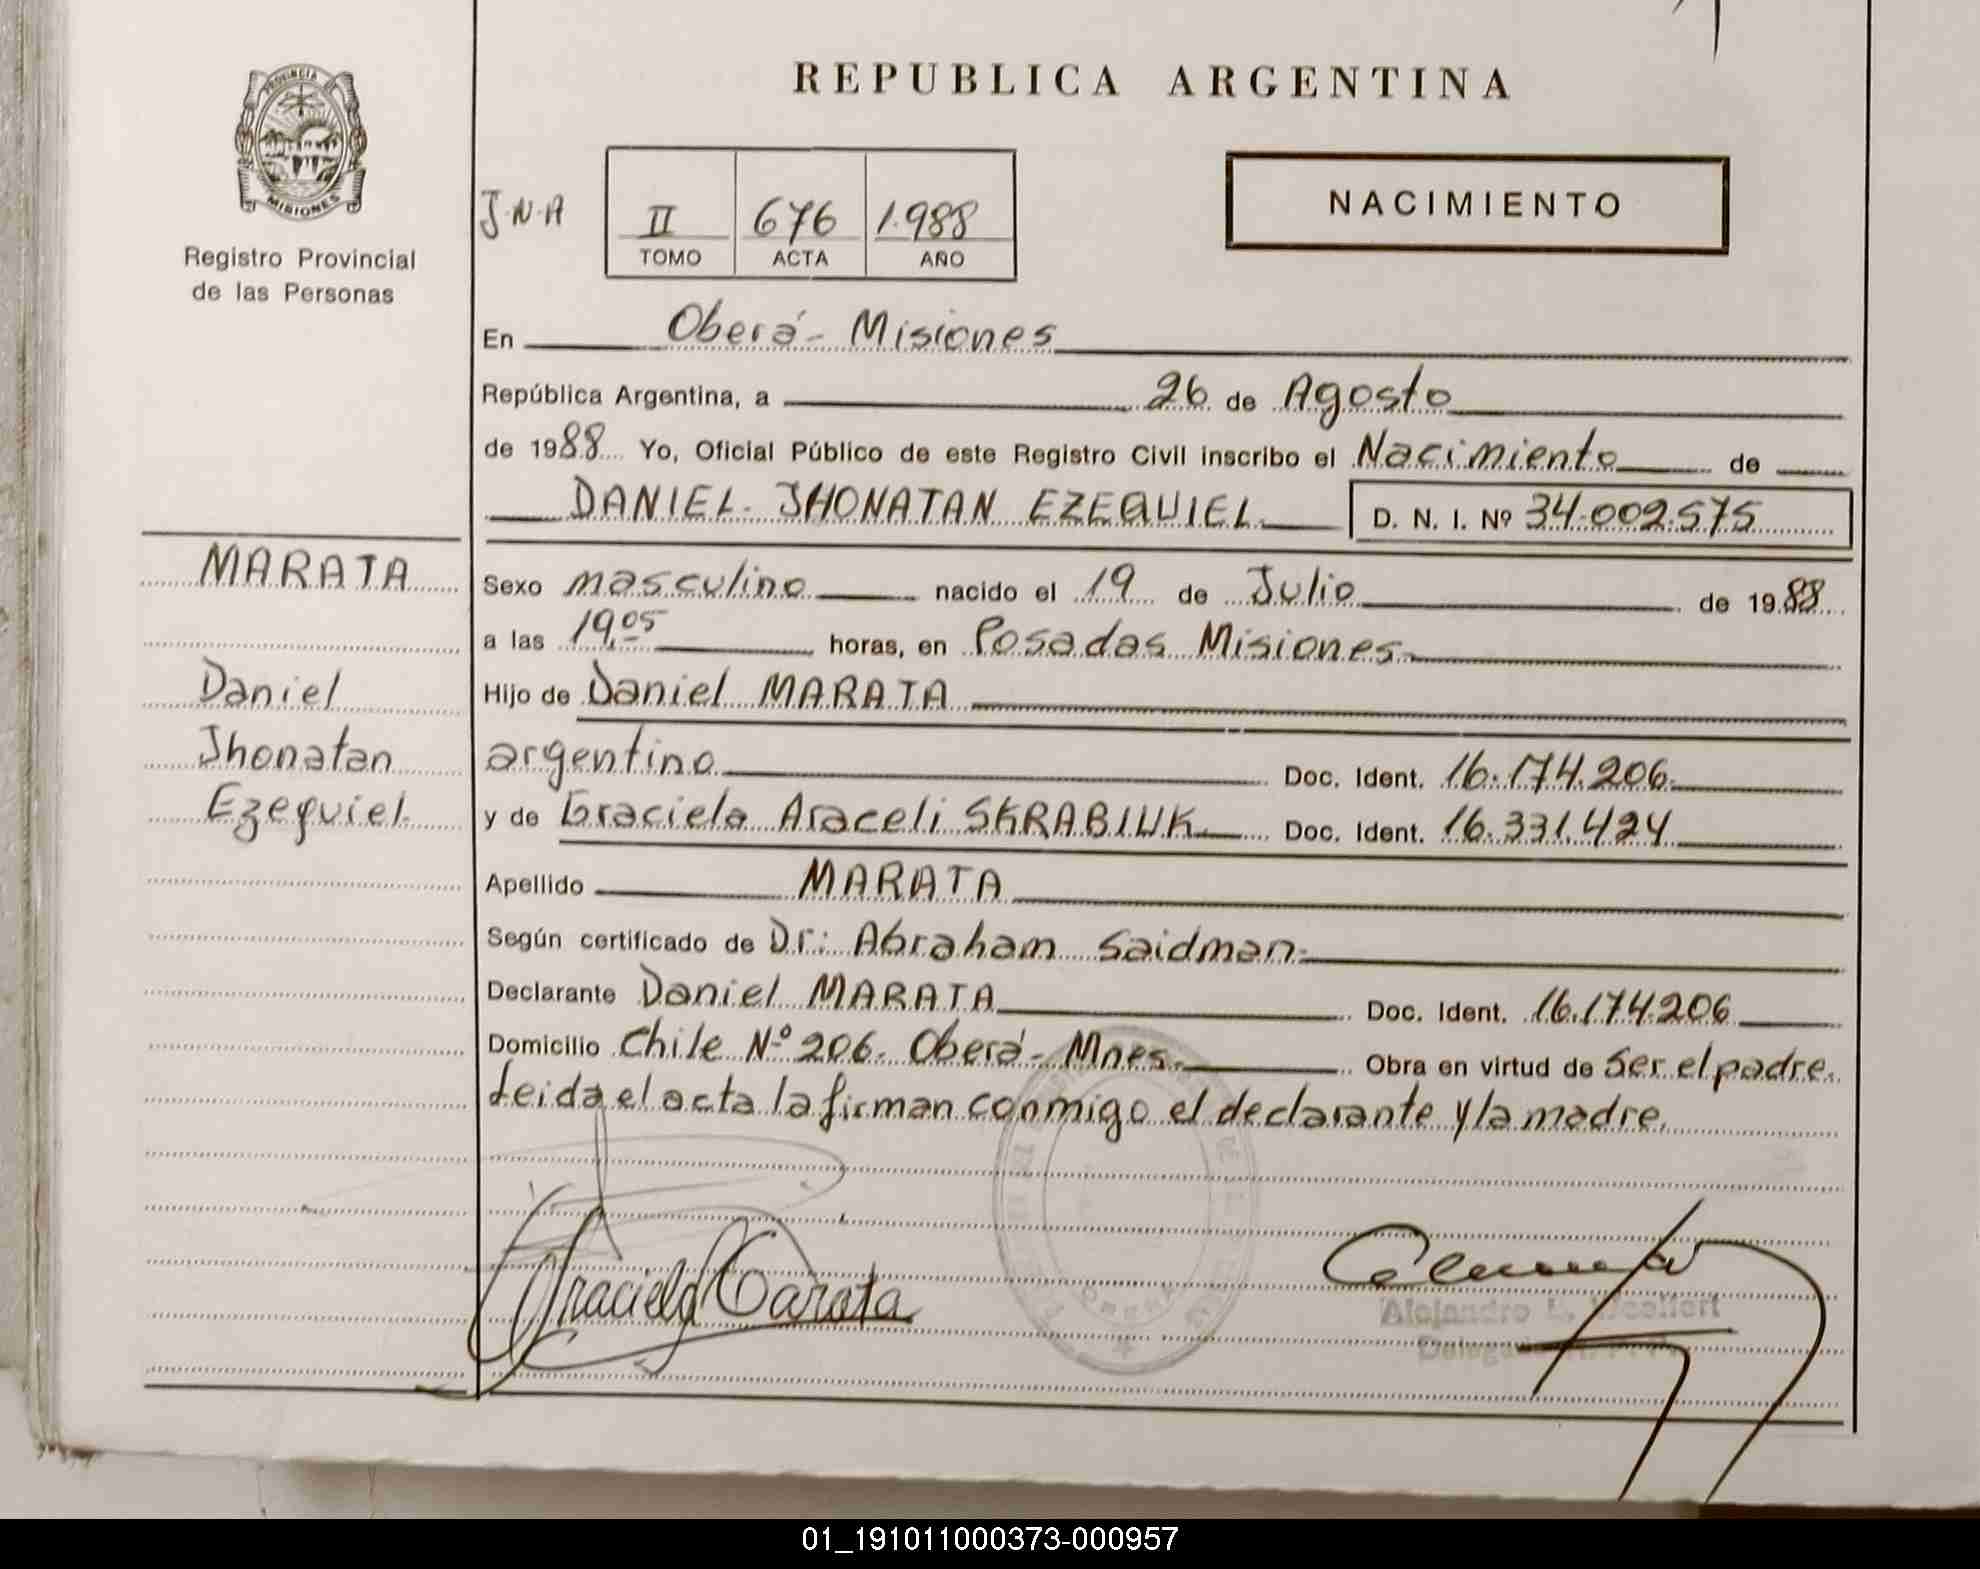 REPUBLICA ARGENTINA
PROVINCIA DE
MISIONES
Registro Provincial
de las Personas
J.N.A
II 676 1.988
TOMO ACTA AÑO
NACIMIENTO
En Oberá - Misiones
República Argentina, a 26 de Agosto
de 1988 Yo, Oficial Público de este Registro Civil inscribo el Nacimiento de
DANIEL JHONATAN EZEQUIEL D. N. I. Nº 34.002.575
MARATA
Daniel
Jhonatan
Ezequiel
Sexo masculino nacido el 19 de Julio de 1988
a las 19,05 horas, en Posadas Misiones
Hijo de Daniel MARATA
argentino Doc. Ident. 16.174.206
y de Graciela Araceli SKRABIUK Doc. Ident. 16.331.424
Apellido MARATA
Según certificado de Dr: Abraham Saidman
Declarante Daniel MARATA Doc. Ident. 16.174.206
Domicilio Chile Nº 206. Oberá - Mnes. Obra en virtud de Ser el padre.
Leida el acta la firman conmigo el declarante y la madre.
Graciela
Alejandro
01_191011000373-000957